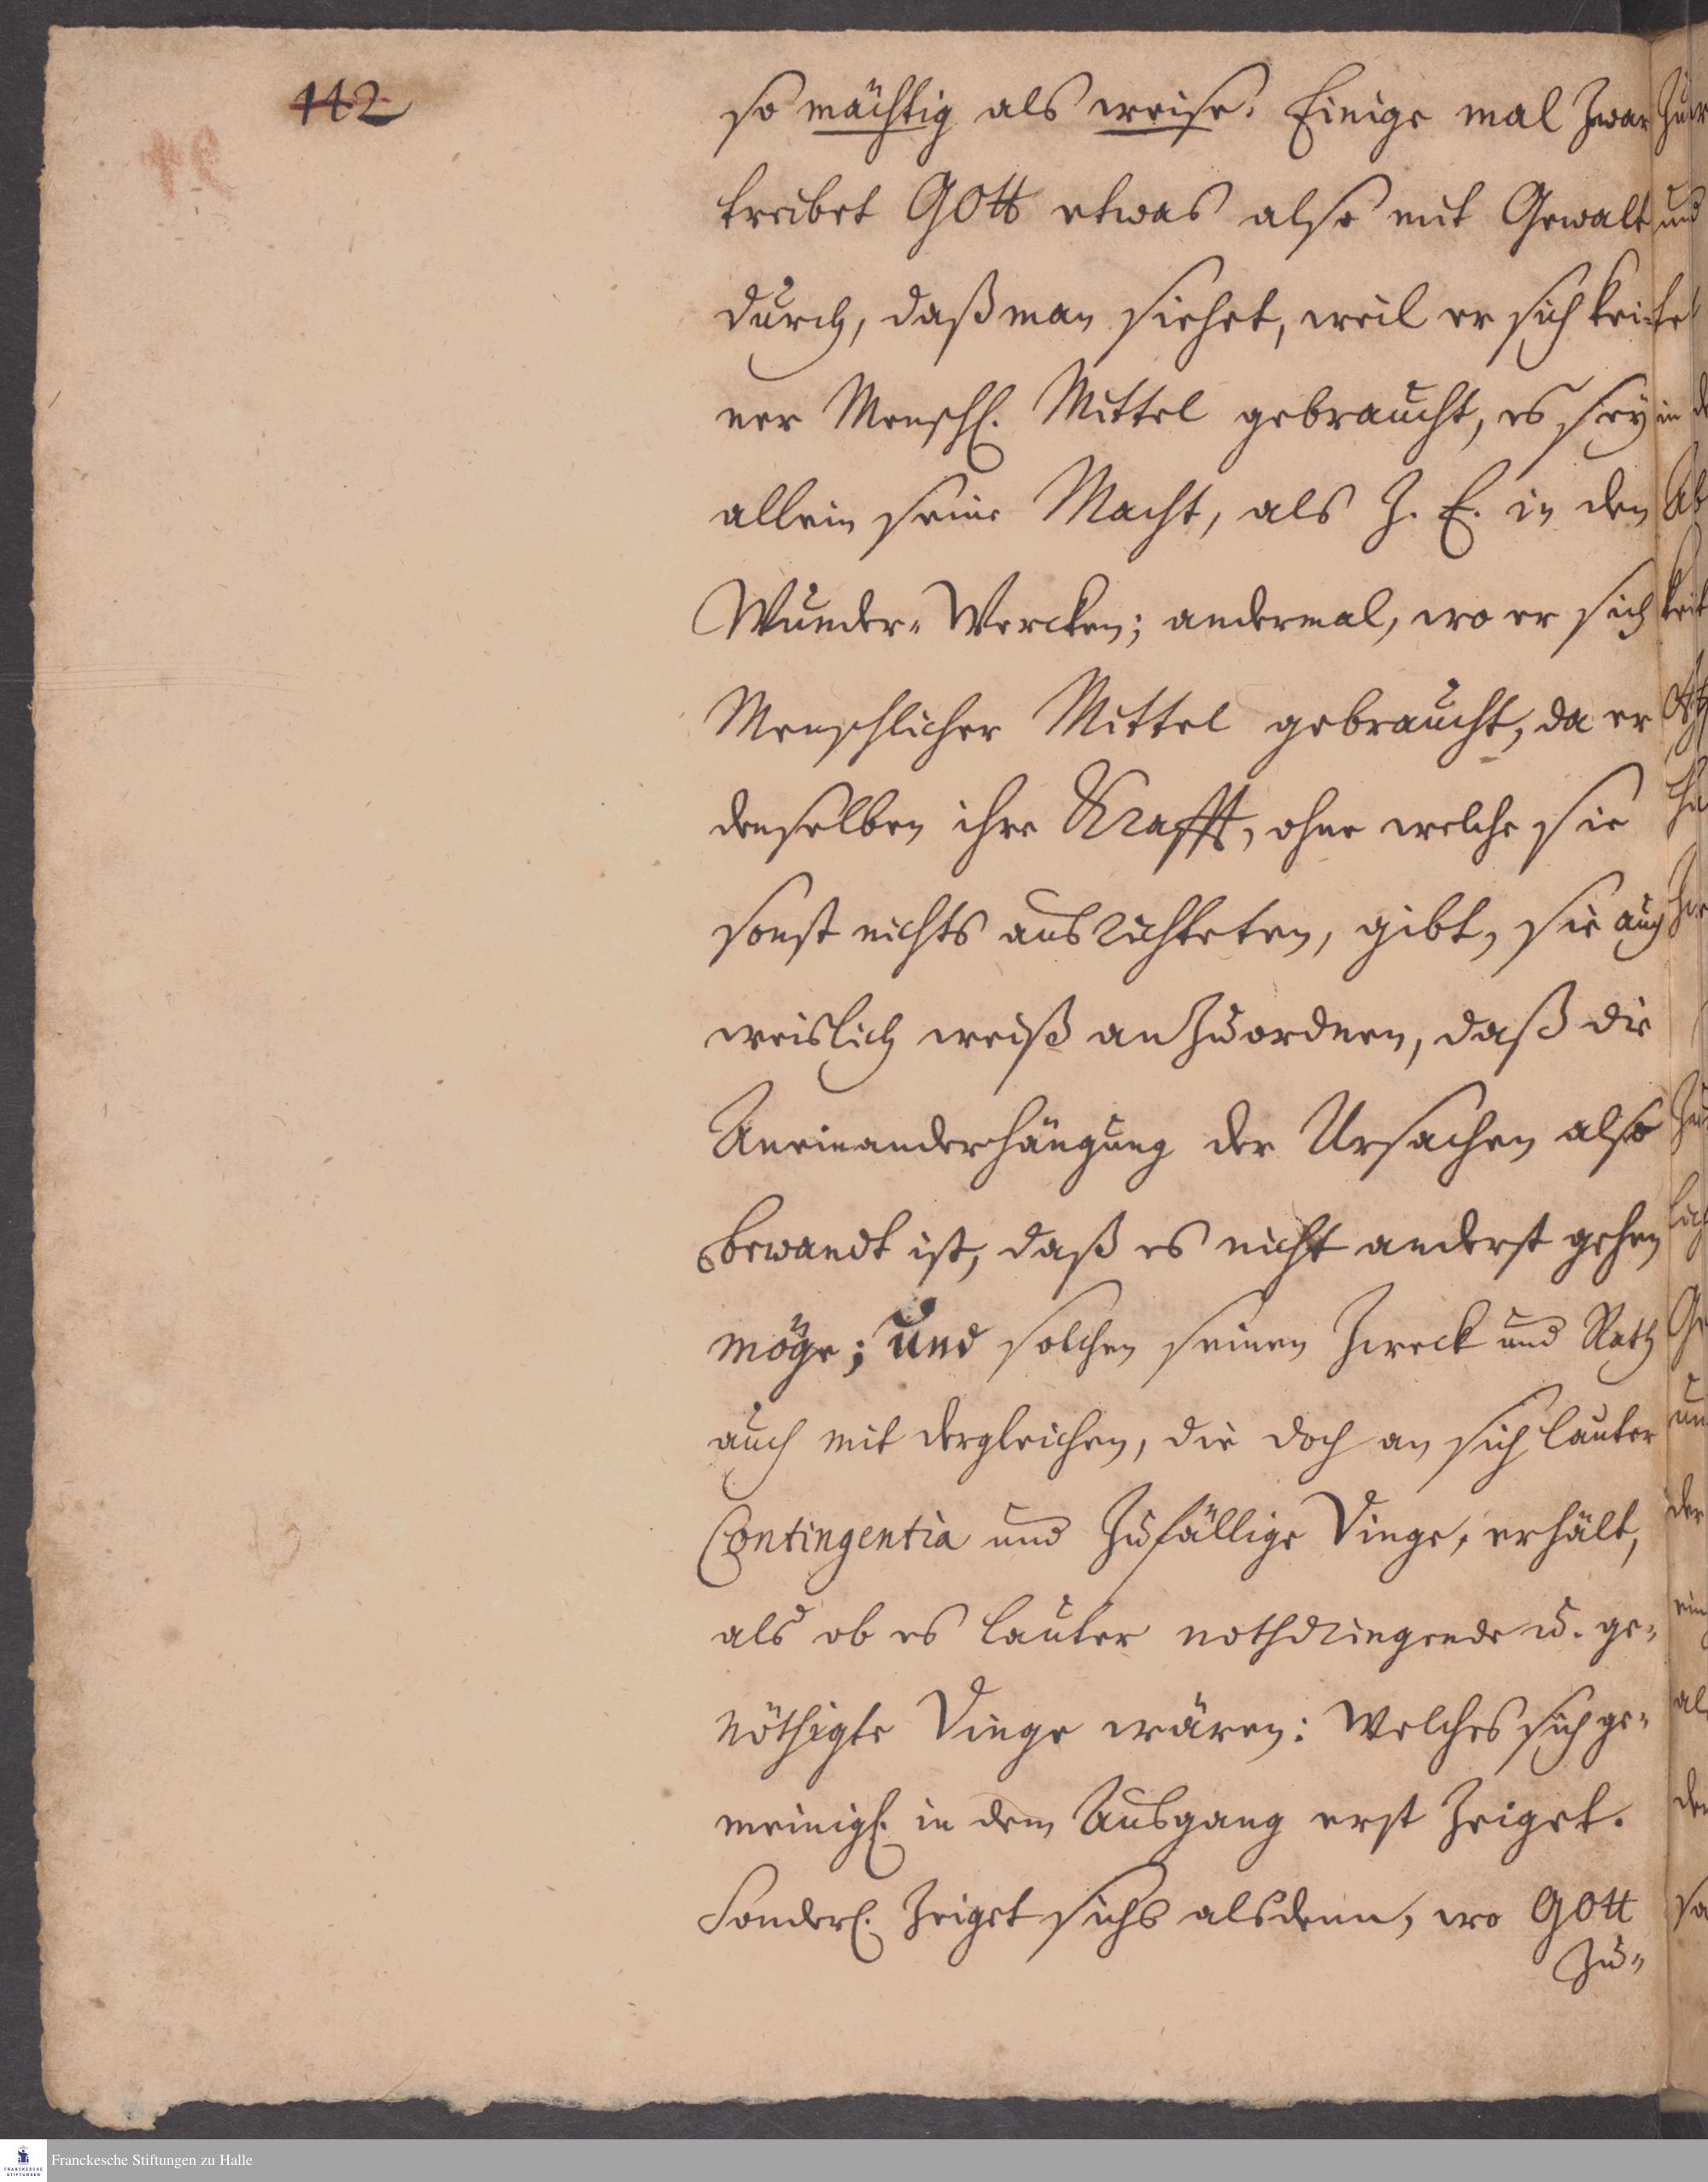 142
so mächtig als weise. Einige mal zwar
treibet GOtt etwas also mit Gewalt
durch, daß man siehet, weil er sich kei-
ner Menschl. Mittel gebraucht, es sey
allein seine Macht, als z. E. in den
Wunder-Wercken; andermal, wo er sich
Menschlicher Mittel gebraucht, da er
denselben ihre Krafft, ohne welche sie
sonst nichts ausrichteten, gibt, sie auch
weislich weiß anzuordnen, daß die
Aneinanderhängung der Ursachen also
bewandt ist, daß es nicht anderst gehen
möge; und solchen seinen Zweck und Rath
auch mit dergleichen, die doch an sich lauter
Contingentia und zufällige Dinge, erhält,
als ob es lauter nothdringende u. ge-
nöthigte Dinge wären: Welches sich ge-
meinigl. in dem Ausgang erst zeiget.
Sonderl. zeiget sichs alsdenn, wo GOtt
zu-
Franckesche Stiftungen zu Halle